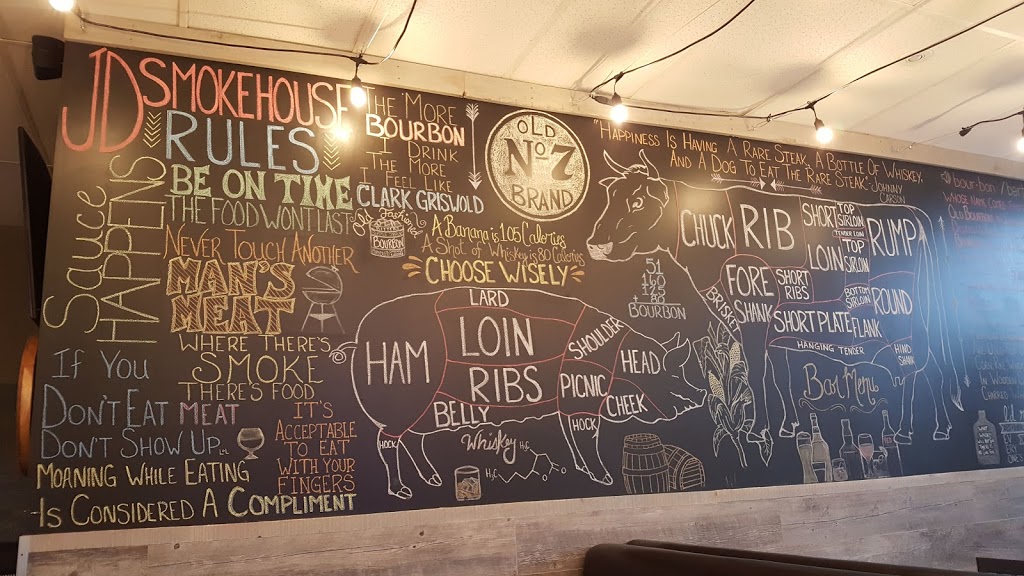 JD SMOKEHOUSE
RULES
BE ON TIME
THE FOOD WONT LAST
NEVER TOUCH ANOTHER
MAN'S
MEAT
WHERE THERE'S
SMOKE
THERE'S FOOD
Sauce
HAPPENS
IF YOU
DON'T EAT MEAT
DON'T SHOW UP
MOANING WHILE EATING
IS CONSIDERED A COMPLIMENT
IT'S
ACCEPTABLE
TO EAT
WITH YOUR
FINGERS
THE MORE
BOURBON
I DRINK
THE MORE
I FEEL LIKE
CLARK GRISWOLD
BOURBON
OLD
No 7
BRAND
A BANANA IS 105 CALORIES
A SHOT OF WHISKEY IS 80 CALORIES
CHOOSE WISELY
LARD
HAM
LOIN
RIBS
BELLY
SHOULDER
PICNIC
HEAD
CHEEK
HOCK
HOCK
Whiskey
H3C
"HAPPINESS IS HAVING A RARE STEAK, A BOTTLE OF WHISKEY,
AND A DOG TO EAT THE RARE STEAK" - JOHNNY
CARSON
51
BOURBON
CHUCK
RIB
SHORT
LOIN
TOP
SIRLOIN
TENDER LOIN
TOP
SIRLOIN
BOTTOM
SIRLOIN
RUMP
ROUND
FORE
SHANK
BRISKET
SHORT
RIBS
SHORT PLATE
FLANK
HANGING TENDER
HIND
SHANK
Bar Menu
bour·bon
WHOSE NAME